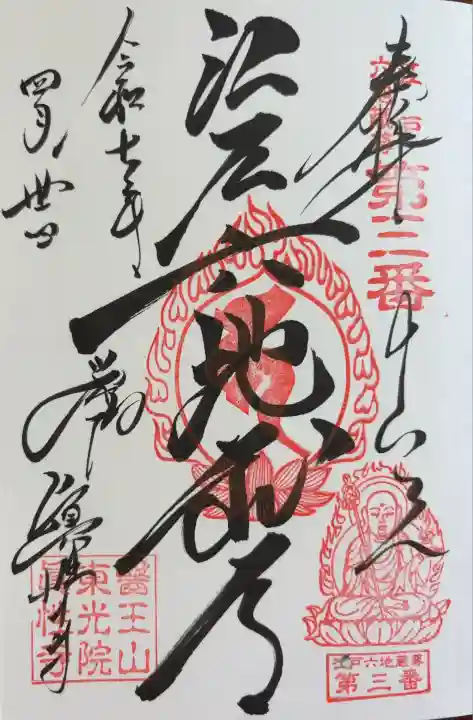 奉拝
第三番
江戸六地蔵尊
令和七年
四月
眞性寺
醫王山
東光院
眞性寺
江戸六地蔵尊
第三番